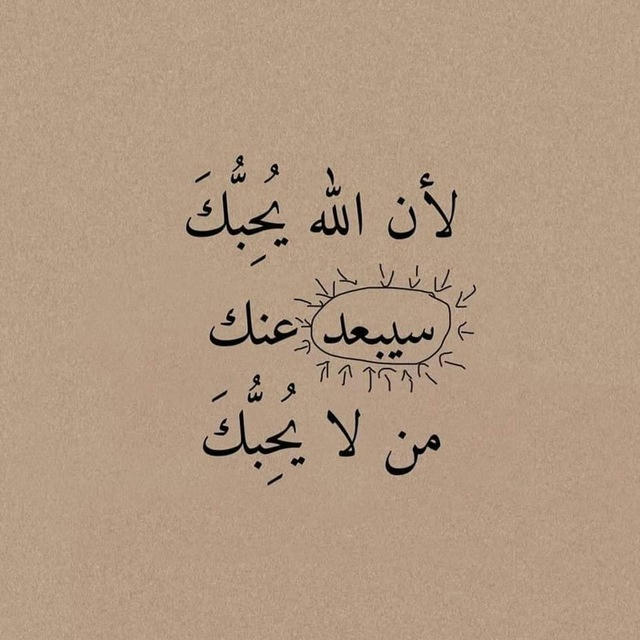 لأن الله يُحِبُّكَ
سيبعد عنك
من لا يُحِبُّكَ